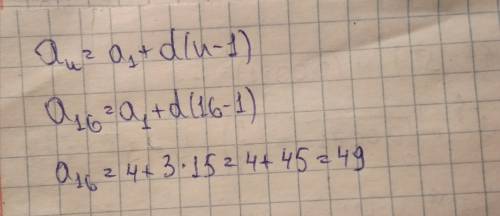 aₙ = a₁ + d(n-1)
a₁₆ = a₁ + d(16-1)
a₁₆ = 4 + 3·15 = 4 + 45 = 49